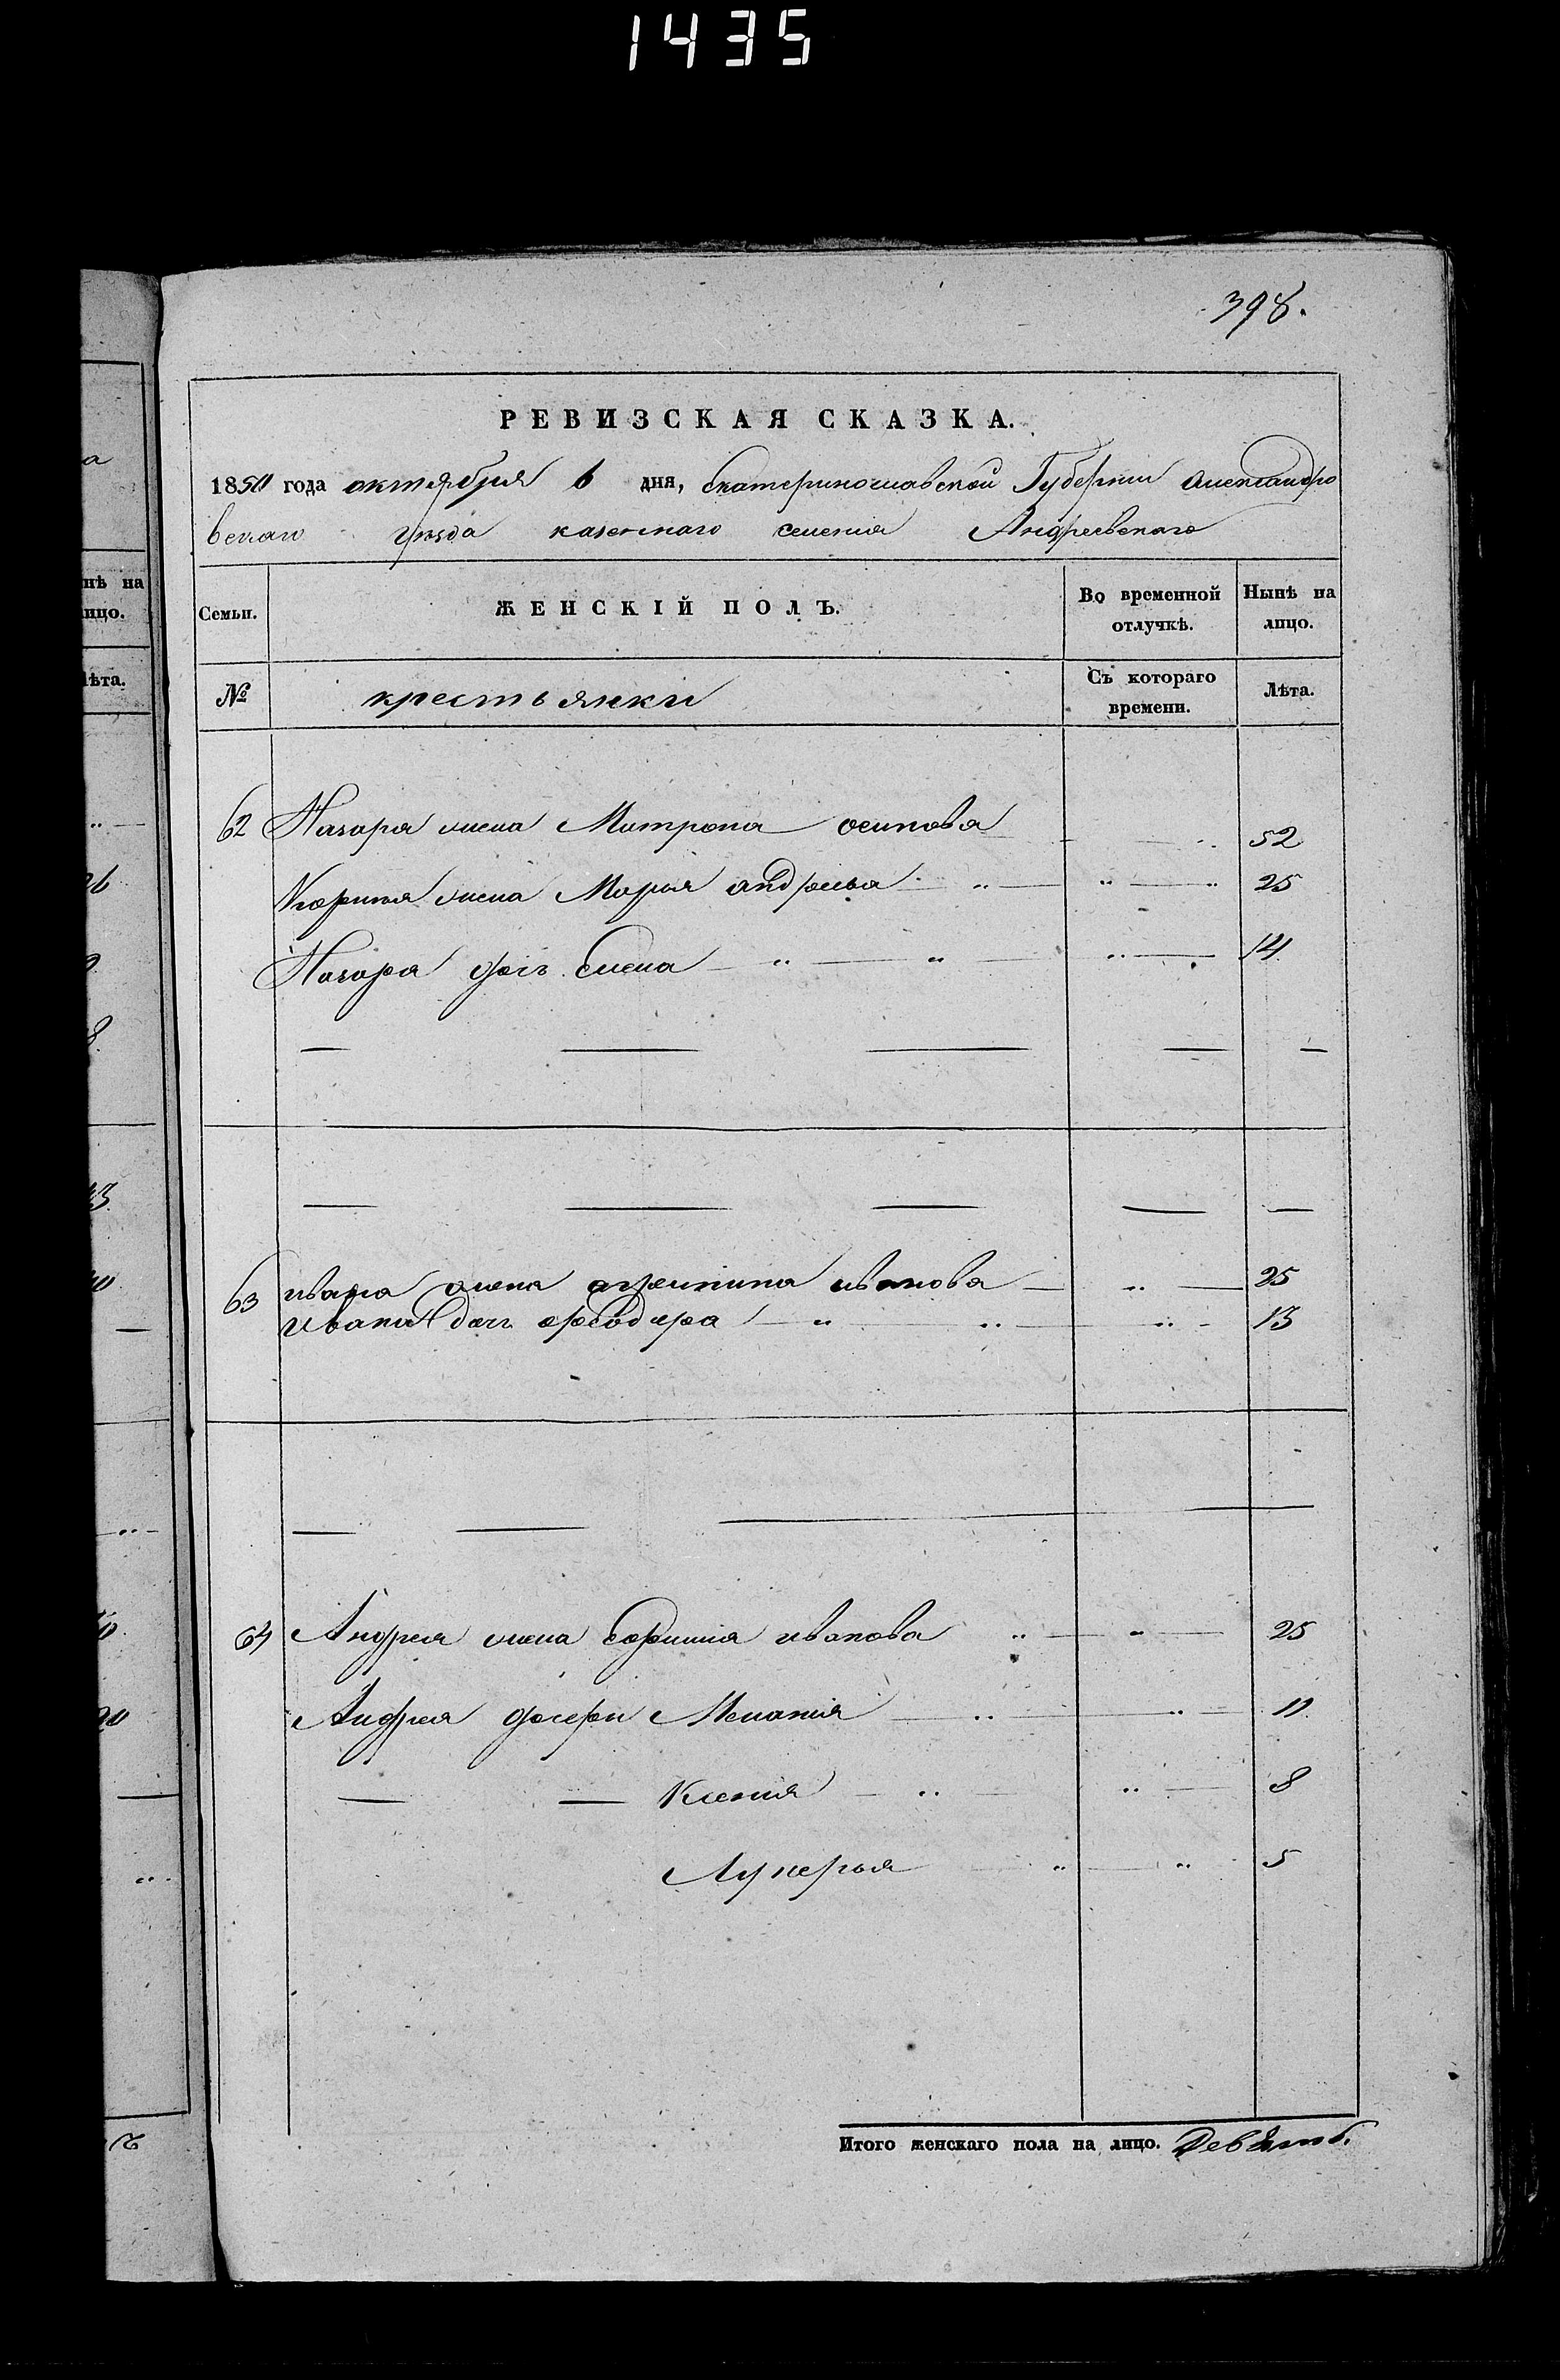 1435
398.
РЕВИЗСКАЯ СКАЗКА.
1850 года октября 6 дня, Екатеринославской Губернии Александро
вскаго уѣзда казеннаго селения Андреевскаго
Семьи.
ЖЕНСКІЙ ПОЛЪ.
Во временной отлучкѣ.
Нынѣ на лицо.
№
крестьянки
Съ котораго времени.
Лѣта.
62 Назара жена Матрона осипова 52
жена Марья андреева 25
Назара доч. Елена 14
63 ивана жена агрепина иванова 25
Ивана доч. феодора 13
64 Андрея жена Ефимия иванова 25
Андрея дочери Мелания 11
Ксения 8
Лукерья 5
Итого женскаго пола на лицо. Девять.
нѣ на
лицо.
лѣта.